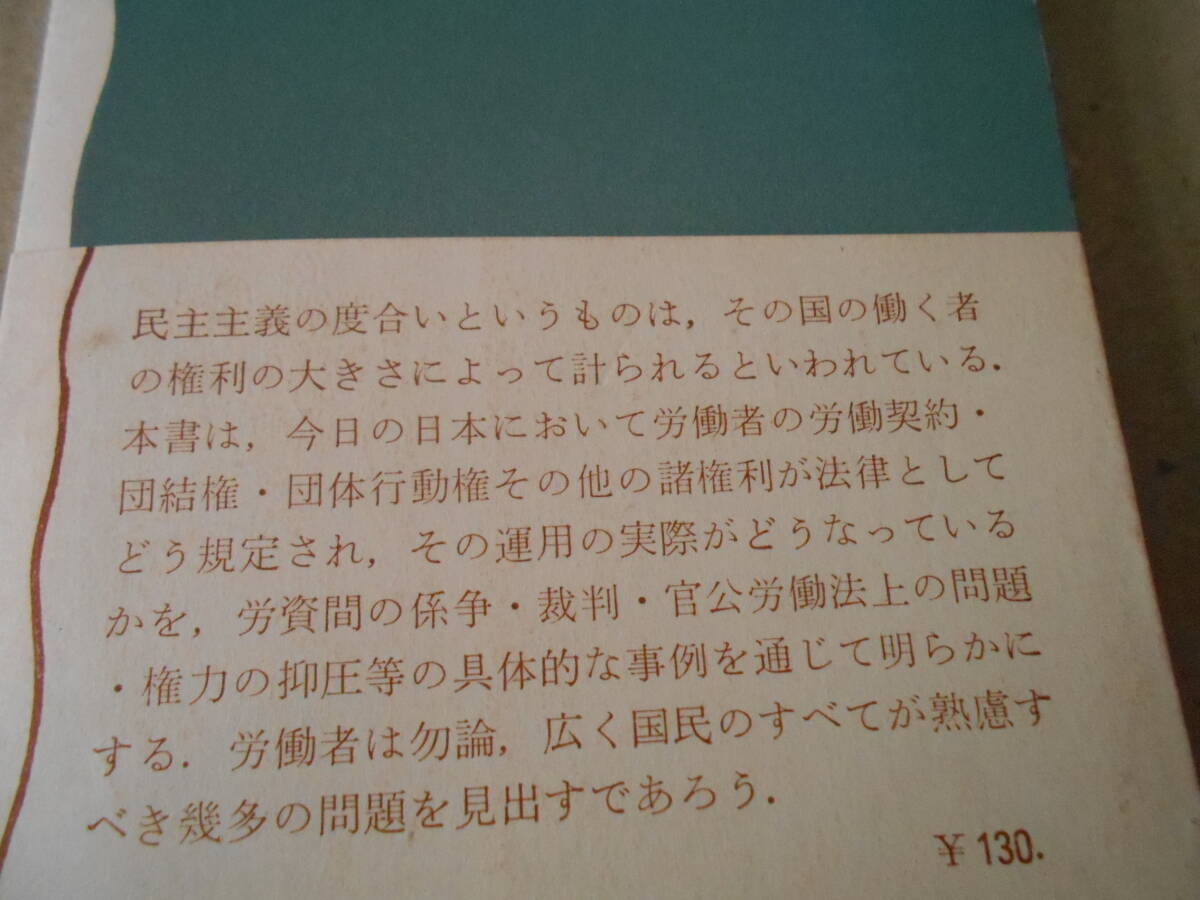 民主主義の度合いというものは，その国の働く者
の権利の大きさによって計られるといわれている．
本書は，今日の日本において労働者の労働契約・
団結権・団体行動権その他の諸権利が法律として
どう規定され，その運用の実際がどうなっている
かを，労資間の係争・裁判・官公労働法上の問題
・権力の抑圧等の具体的な事例を通じて明らかに
する．労働者は勿論，広く国民のすべてが熟慮す
べき幾多の問題を見出すであろう．
￥130.